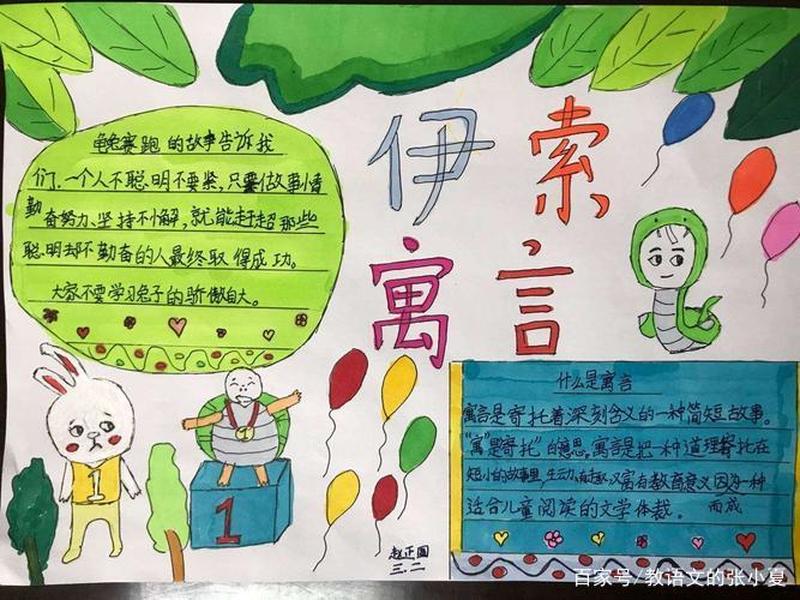 伊索
寓言
龟兔赛跑的故事告诉我
们.一个人不聪明不要紧,只要做事情
勤奋努力、坚持不懈,就能赶超那些
聪明却不勤奋的人最终取得成功。
大家不要学习兔子的骄傲自大。
什么是寓言
寓言是寄托着深刻含义的一种简短故事。
“寓”是寄托”的意思,寓言是把一种道理寄托在
短小的故事里,生动、有趣、又富有教育意义因为一种
适合儿童阅读的文学体裁。而成
1
1
赵正
三.二
百家号/教语文的张小夏